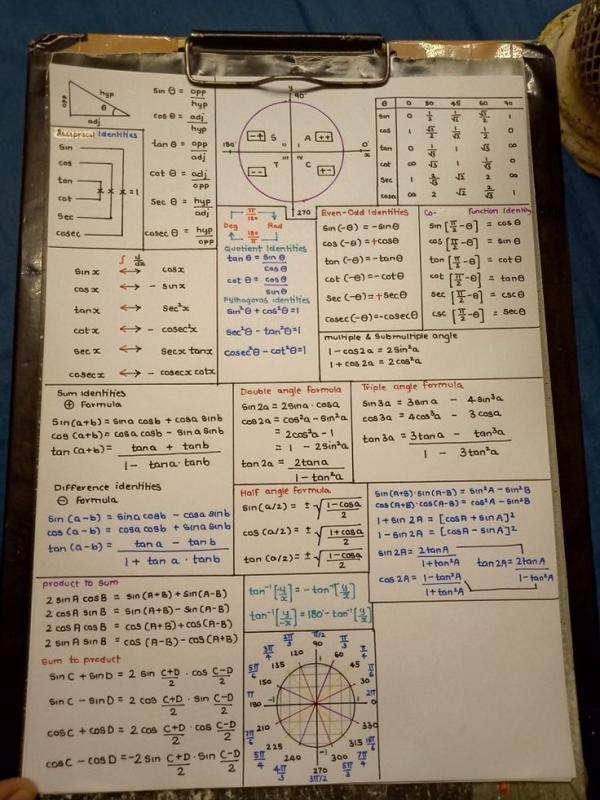 opp hyp θ adj
sin θ = opp/hyp
cos θ = adj/hyp
tan θ = opp/adj
cot θ = adj/opp
sec θ = hyp/adj
cosec θ = hyp/opp
Reciprocal Identities
sin
cos
tan
cot
sec
cosec
=1
y
90°
180°
0°
x
270
-+ S
A ++
-- T
C +-
II I
III IV
θ 0 30 45 60 90
sin 0 1/2 1/√2 √3/2 1
cos 1 √3/2 1/√2 1/2 0
tan 0 1/√3 1 √3 ∞
cot ∞ √3 1 1/√3 0
sec 1 2/√3 √2 2 ∞
cosec ∞ 2 √2 2/√3 1
∫ dy/dx
sin x ↔ cos x
cos x ↔ - sin x
tan x ↔ sec²x
cot x ↔ - cosec²x
sec x ↔ sec x tan x
cosec x ↔ - cosec x cot x
π/180
Deg Rad
180/π
Quotient Identities
tan θ = sin θ/cos θ
cot θ = cos θ/sin θ
Pythagoras identities
sin²θ + cos²θ = 1
sec²θ - tan²θ = 1
cosec²θ - cot²θ = 1
Even-Odd Identities
sin(-θ) = -sin θ
cos(-θ) = +cos θ
tan(-θ) = -tan θ
cot(-θ) = -cot θ
sec(-θ) = +sec θ
cosec(-θ) = -cosec θ
Co- Function Identity
sin[π/2 - θ] = cos θ
cos[π/2 - θ] = sin θ
tan[π/2 - θ] = cot θ
cot[π/2 - θ] = tan θ
sec[π/2 - θ] = csc θ
csc[π/2 - θ] = sec θ
multiple & Submultiple angle
1 - cos2a = 2sin²a
1 + cos2a = 2cos²a
Sum identities
⊕ Formula
sin(a+b) = sina cosb + cosa sinb
cos(a+b) = cosa cosb - sina sinb
tan(a+b) = tana + tanb / 1 - tana·tanb
Difference identities
⊖ Formula
sin(a-b) = sina cosb - cosa sinb
cos(a-b) = cosa cosb + sina sinb
tan(a-b) = tan a - tan b / 1 + tan a · tan b
Double angle Formula
sin2a = 2sina · cosa
cos2a = cos²a - sin²a
= 2cos²a - 1
= 1 - 2sin²a
tan2a = 2tana / 1 - tan²a
Triple angle Formula
sin3a = 3sin a - 4sin³a
cos3a = 4cos³a - 3 cosa
tan3a = 3tana - tan³a / 1 - 3tan²a
Half angle Formula
sin(a/2) = ± √(1-cosa / 2)
cos(a/2) = ± √(1+cosa / 2)
tan(a/2) = ± √(1-cosa / 1+cosa)
sin(A+B)·sin(A-B) = sin²A - sin²B
cos(A+B)·cos(A-B) = cos²A - sin²B
1 + sin 2A = [cosA + sinA]²
1 - sin 2A = [cosA - sinA]²
sin2A = 2tanA / 1+tan²A
tan2A = 2tanA / 1-tan²A
cos2A = 1-tan²A / 1+tan²A
product to sum
2 sin A cos B = sin(A+B) + sin(A-B)
2 cos A sin B = sin(A+B) - sin(A-B)
2 cos A cos B = cos(A+B) + cos(A-B)
2 sin A sin B = cos(A-B) - cos(A+B)
sum to product
sin C + sin D = 2 sin C+D/2 · cos C-D/2
sin C - sin D = 2 cos C+D/2 · sin C-D/2
cos C + cos D = 2 cos C+D/2 · cos C-D/2
cos C - cos D = -2 sin C+D/2 · sin C-D/2
tan⁻¹[-y/x] = - tan⁻¹[y/x]
tan⁻¹[y/-x] = 180° - tan⁻¹[y/x]
2π/3 π/2 π/3
3π/4 120 90 60 π/4
5π/6 135 1 45 π/6
150 30
π 180 -1 1 0 2π
210 330
7π/6 225 -1 315 11π/6
5π/4 240 270 300 7π/4
4π/3 3π/2 5π/3